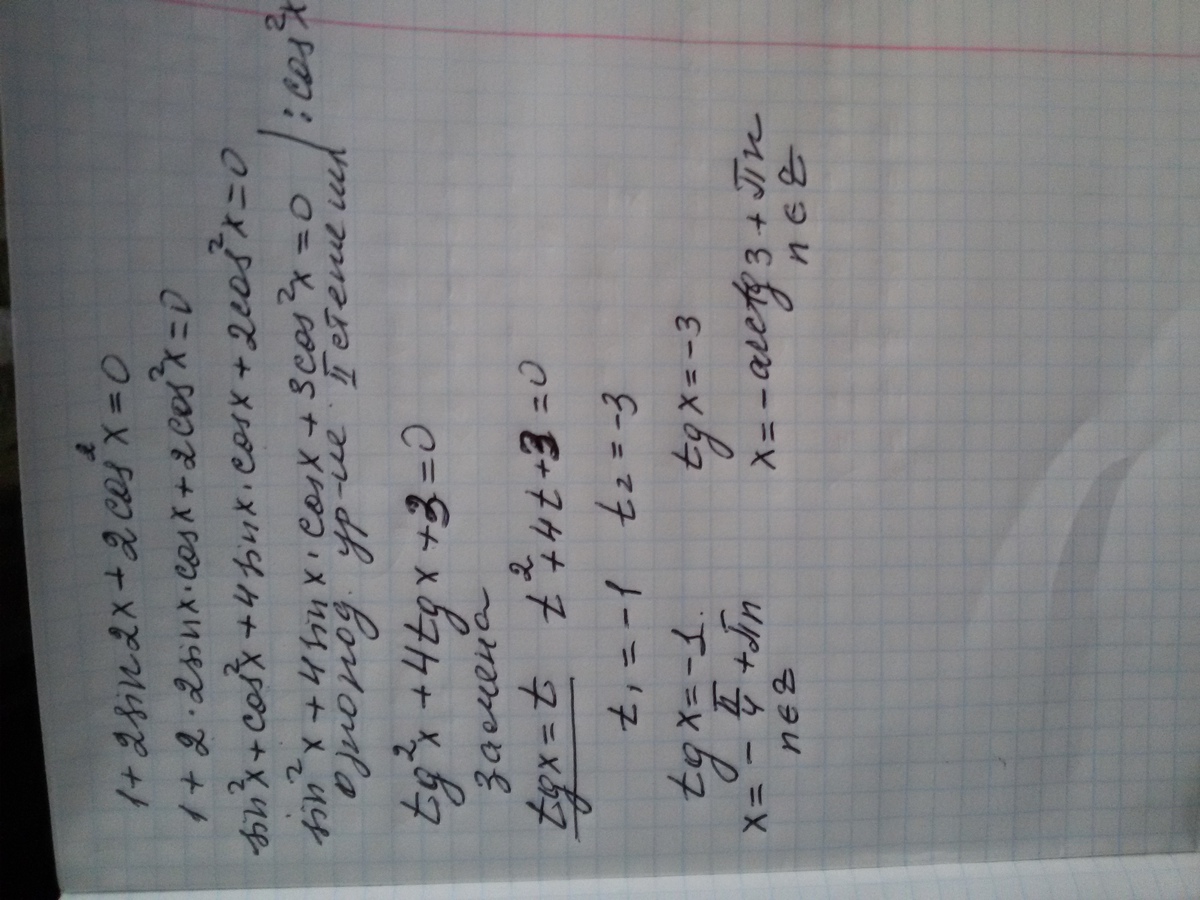 1 + 2sin2x + 2cos²x = 0
1 + 2·2sinx·cosx + 2cos²x = 0
sin²x + cos²x + 4sinx·cosx + 2cos²x = 0
sin²x + 4sinx·cosx + 3cos²x = 0 | : cos²x
однород. ур-ие II степении
tg²x + 4tgx + 3 = 0
замена
tgx = t t² + 4t + 3 = 0
t₁ = -1 t₂ = -3
tgx = -1. tgx = -3
x = -π/4 + πn x = -arctg3 + πn
n ∈ Z n ∈ Z